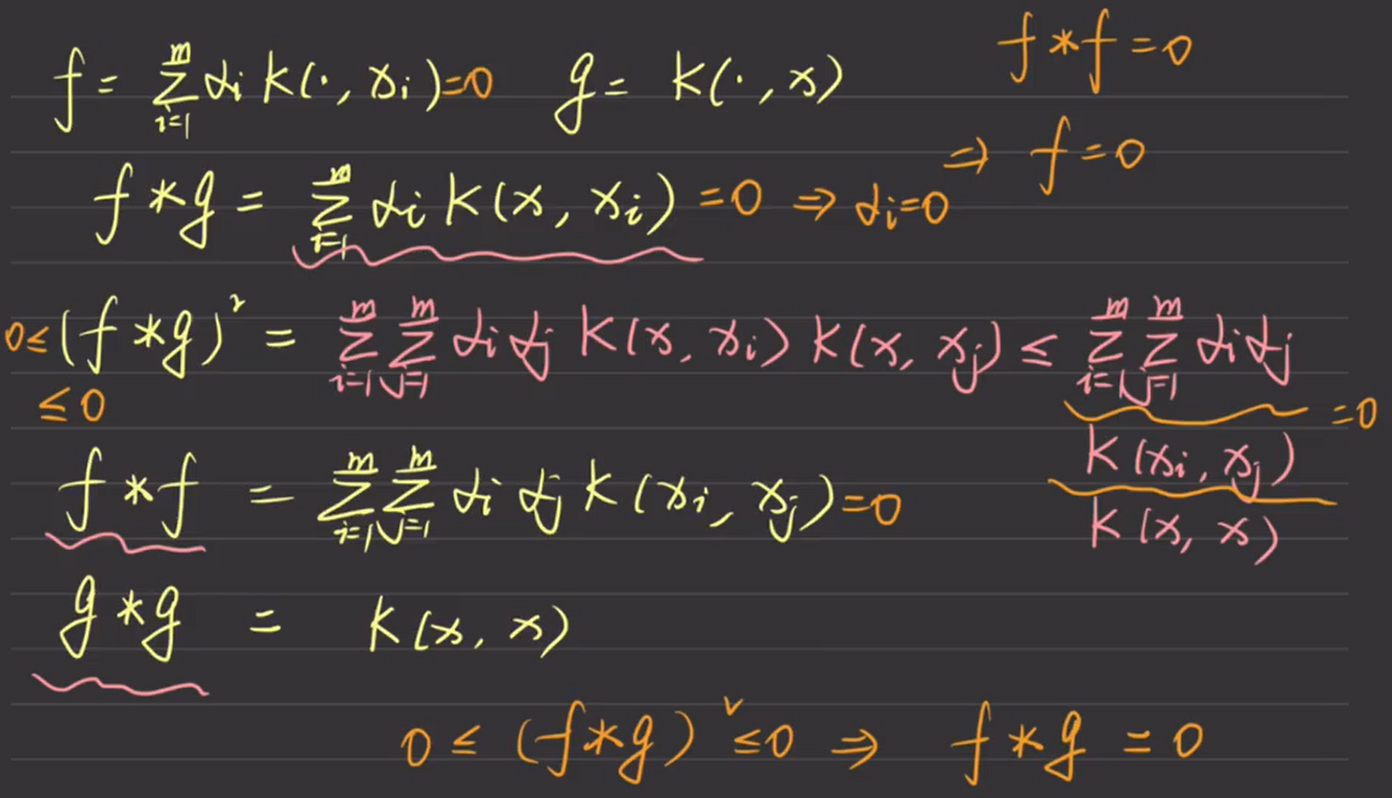 f = Σ_{i=1}^{m} αi K(·, xi) = 0   g = K(·, x)   f * f = 0
⇒ f = 0
f * g = Σ_{i=1}^{m} αi K(x, xi) = 0 ⇒ αi = 0
0 ≤ (f * g)² = Σ_{i=1}^{m} Σ_{j=1}^{m} αi αj K(x, xi) K(x, xj) ≤ Σ_{i=1}^{m} Σ_{j=1}^{m} αi αj
≤ 0   = 0
K(xi, xj)
f * f = Σ_{i=1}^{m} Σ_{j=1}^{m} αi αj K(xi, xj) = 0   K(x, x)
g * g = K(x, x)
0 ≤ (f * g)² ≤ 0 ⇒ f * g = 0